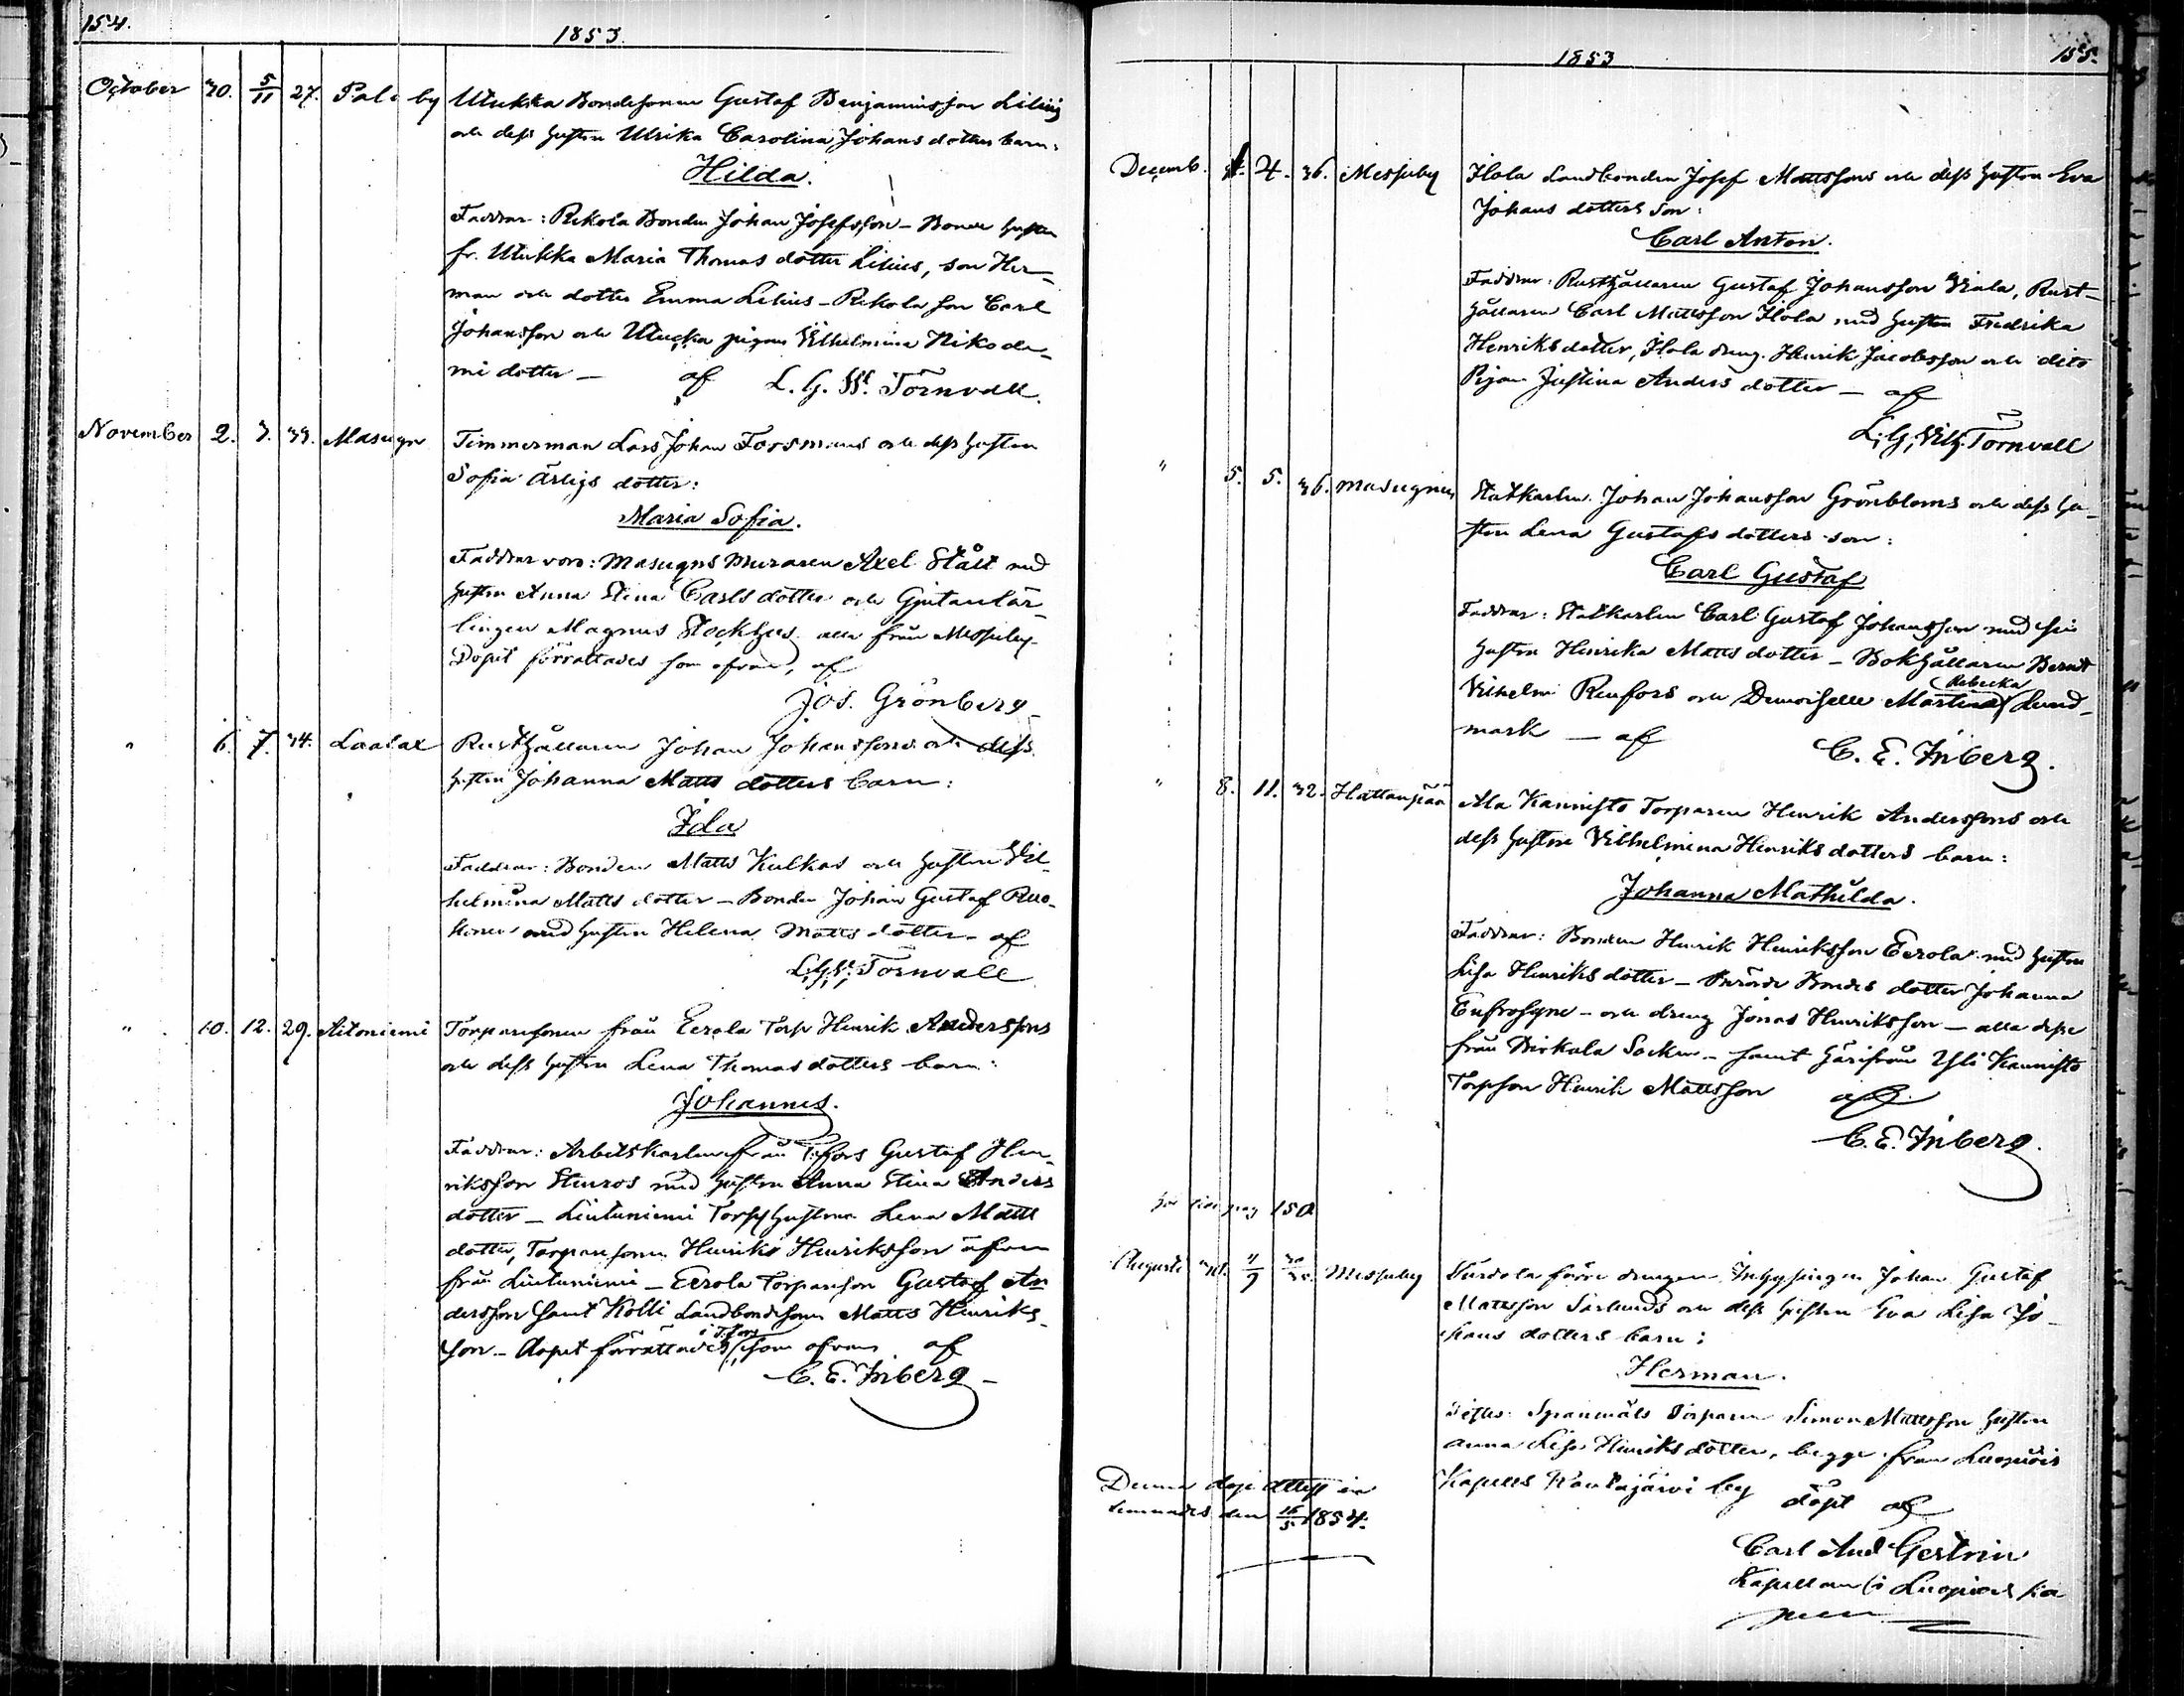 154.
1853.
October 30. 5/11 27. Palo by Utukka Bondesonen Gustaf Benjaminsson Lilius
och dess hustru Ulrika Carolina Johans dotters barn:
Hilda.
Faddrar: Rekola Bonden Johan Josefsson – Bonde hustru
fr. Utukka Maria Thomas dotter Lilius, son Her-
man och dotter Emma Lilius – Rekola son Carl
Johansson och Utukka pigan Vilhelmina Nikode-
mi dotter – af L. G. W. Törnvall.
November 2. 3. 33. Masugn Timmerman Lars Johan Forsmans och dess hustru
Sofia Ärligs dotter:
Maria Sofia.
Faddrar voro: Masugns Muraren Axel Stålt med
hustru Anna Stina Carls dotter och Gjutarlär-
lingen Magnus Stockhus alla från Messuby
Dopet förrättades som ofvan, af
Jos. Grönberg
" 6. 7. 34. Laalax Rusthållaren Johan Johanssons och dess
hustru Johanna Matts dotters barn:
Ida
Faddrar: Bonden Matts Kulkas och hustrun Vil-
helmina Matts dotter – Bonden Johan Gustaf
med hustru Helena Matts dotter – af
L. G. W. Törnvall
" 10. 12. 29. Aitoniemi Torparesonen från Eerola Torp Henrik Anderssons
och dess hustru Lena Thomas dotters barn:
Johannes.
Faddrar: Arbetskarlen från T.fors Gustaf Hen-
riksson Stenros med hustru Anna Stina Anders
dotter – Liutuniemi Torp hustrun Lena Matts
dotter, Torparesonen Henrik Henriksson äfven
från Liutuniemi – Eerola Torparson Gustaf An-
dersson samt Kolli Landbondesonen Matts Henriks-
son – Dopet förrättades i T.fors som ofvan af
C. E. Inberg
1853
155.
Decemb. 4. 36. Messuby Hola Landbonden Josef Mattssons och dess hustru Eva
Johans dotters son:
Carl Anton.
Faddrar: Rusthållaren Gustaf Johansson Wiala, Rust-
hållaren Carl Mattsson Hola med hustru Fredrika
Henriks dotter, Hola dreng Henrik Jacobsson och dito
Pigan Justina Anders dotter – af
L. G. Vilh. Törnvall
" 5. 5. 36. Masugnen Statkarlen Johan Johansson Grönbloms och dess hu-
stru Lena Gustafs dotters son:
Carl Gustaf
Faddrar: Statkarlen Carl Gustaf Johansson med sin
hustru Henrika Matts dotter – Bokhållaren Berndt
Vilhelm Renfors och Demoiselle Martina Rebecka Lund-
mark – af C. E. Inberg.
" 8. 11. 32. Hattanpää Ala Kannisto Torparen Henrik Anderssons och
dess hustru Vilhelmina Henriks dotters barn:
Johanna Mathilda.
Faddrar: Bonden Henrik Henriksson Eerola med hustru
Lisa Henriks dotter – Bonde dotter Johanna
Eufrosyne – och dreng Jonas Henriksson – alla desse
från Birkala Socken – samt härifrån Yli Kannisto
Torpson Henrik Mattsson af
C. E. Inberg.
pag 150
Augusti 4/9 Messuby förre drengen Inhysingen Johan Gustaf
Mattsson Särlunds och dess hustru Eva Lisa Jo-
hans dotters barn:
Herman.
Torparen Simon Mattsson hustru
Anna Lisa Henriks dotter, begge från Luopiois
Kapells Rautajärvi by döpt af
Denna dop attest in
lemnades den 16/5 1854.
Carl Aud Gestrin
Kapellan i Luopiois ka